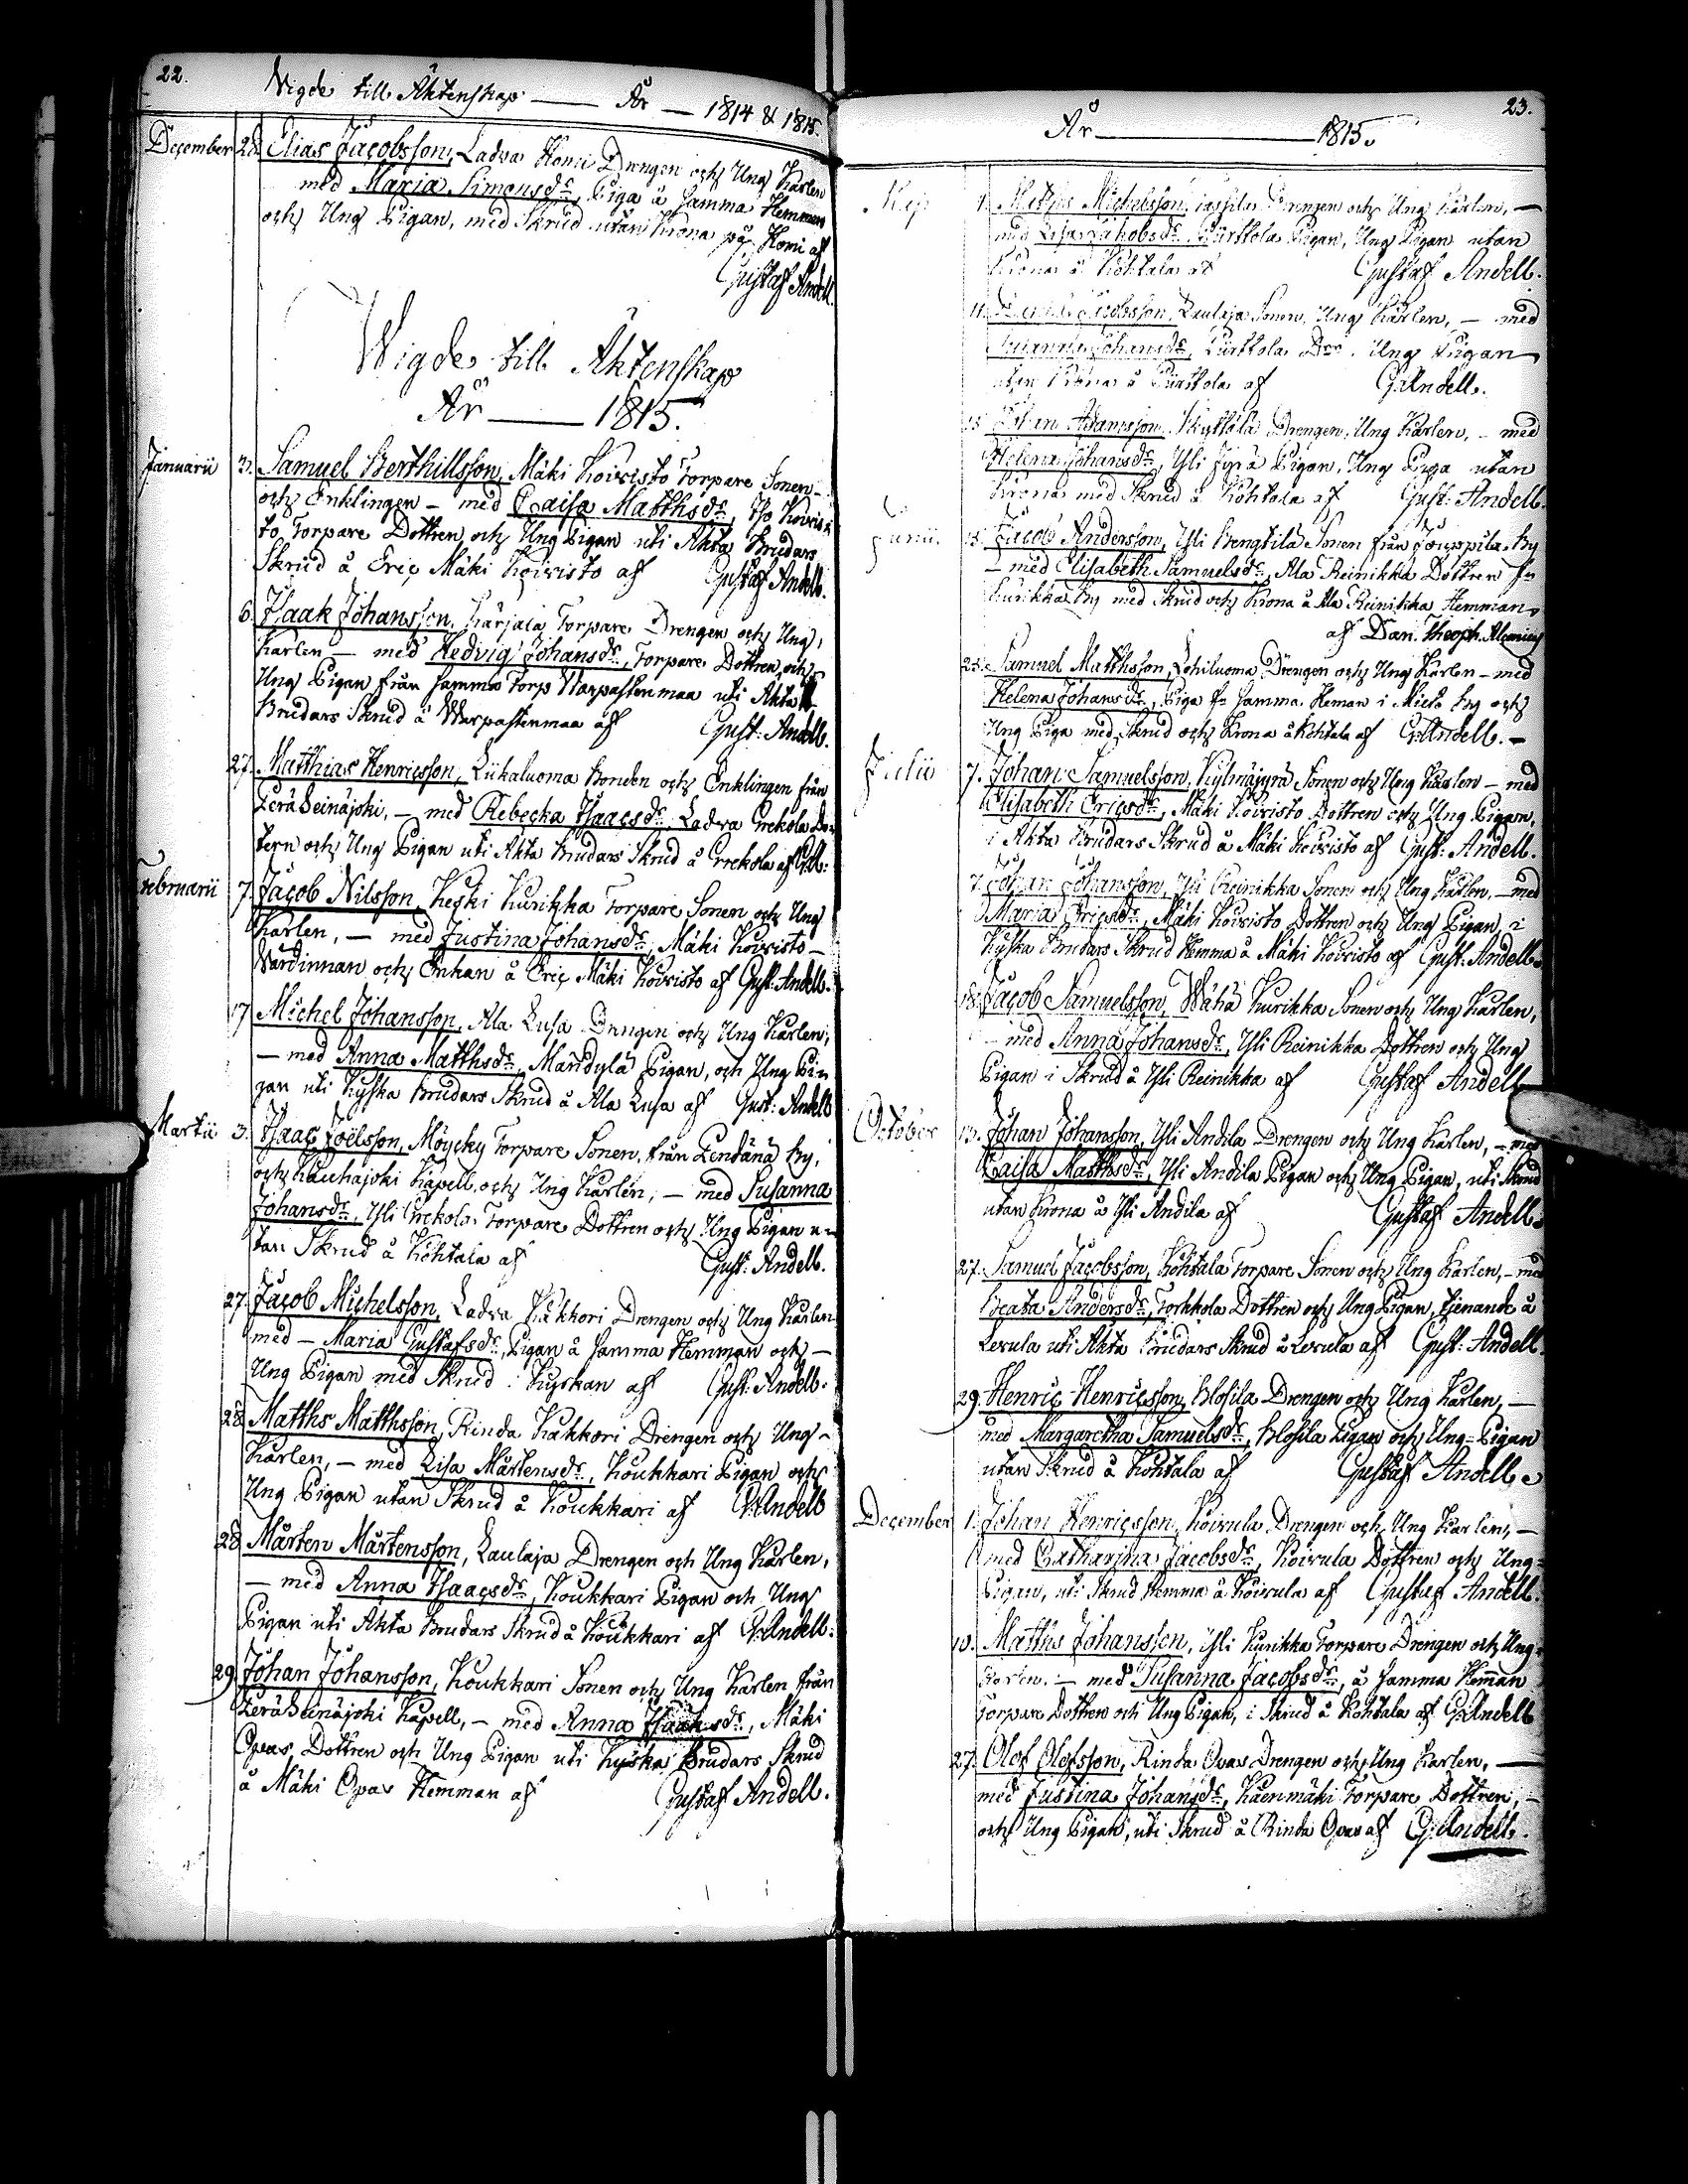 22.
Vigde till Äktenskap — År — 1814 & 1815.
December 28. Elias Jacobsson, Ladva Homi Drengen och Ung Karlen
med Maria Simonsdr, Piga å samma Hemman
och Ung Pigan, med Skrud utan Krona på Homi af
Gustaf Andell.
Wigde till Äktenskap
År — 1815.
Januarii 3. Samuel Berthillsson, Mäki Koivisto Torpare Sonen
och Enklingen – med Caisa Matthsdr, Iso Koivis-
to Torpare Dottren och Ung Pigan uti Äkta Brudars
Skrud å Eric Mäki Koivisto af Gustaf Andell.
6. Isaak Johansson, Karjala Torpare Drengen och Ung
Karlen – med Hedvig Johansdr, Torpare Dottren och
Ung Pigan från samma Torp Warpastenmaa uti Äkta
Brudars Skrud å Warpastenmaa af Gust: Andell.
27. Matthias Henricsson, Liikaluoma Bonden och Enklingen från
Peräseinäjoki, – med Rebecka Isaacsdr, Ladva Crekola Dot-
tern och Ung Pigan uti Äkta Brudars Skrud å Crekola af
Februarii 7. Jacob Nilsson, Keski Kurikka Torpare Sonen och Ung
Karlen, – med Justina Johansdr, Mäki Koivisto –
Värdinnan och Enkan å Eric Mäki Koivisto af Gust: Andell.
17. Michel Johansson, Ala Lusa Drengen och Ung Karlen,
– med Anna Matthsdr, Mandylä Pigan, och Ung Pi-
gan uti Kyska Brudars Skrud å Ala Lusa af Gust: Andell
Martii 3. Isaac Joëlsson, Möycky Torpare Sonen, från Pendänä by,
och Kauhajoki Kapell, och Ung Karlen, – med Susanna
Johansdr, Yli Crekola Torpare Dottren och Ung Pigan u-
tan Skrud å Kohtala af Gust: Andell.
27. Jacob Michelsson, Ladva Kakkori Drengen och Ung Karlen
med – Maria Gustafsdr, Pigan å samma Hemman och –
Ung Pigan med Skrud i Kyrkan af Gust: Andell.
28. Matths Matthsson, Rinda Kakkori Drengen och Ung –
Karlen, – med Lisa Mårtensdr, Koukkari Pigan och
Ung Pigan utan Skrud å Koukkari af G: Andell
28. Mårten Mårtensson, Laulaja Drengen och Ung Karlen,
– med Anna Isaacsdr, Koukkari Pigan och Ung
Pigan uti Äkta Brudars Skrud å Koukkari af G: Andell.
29. Johan Johansson, Koukkari Sonen och Ung Karlen från
Peräseinäjoki Kapell, – med Anna Isaaksdr, Mäki
Opas Dottren och Ung Pigan uti Kyska Brudars Skrud
å Mäki Opas Hemman af Gustaf Andell.
23.
År — 1815.
Maj 1. Matths Michelsson, Drengen och Ung Karlen, –
med Lisa Jakobsdr, Purttola Pigan, Ung Pigan utan
Krona å Kohtala af Gustaf Andell.
11. Jacobsson, Laulaja Sonen, Ung Karlen, – med
Susanna Johansdr, Purttola Dr. Ung Pigan
utan Krona å Purttola af G: Andell.
15. Johan Adamsson, Skyttälä Drengen, Ung Karlen, – med
Helena Johansdr, Yli Jyrä Pigan, Ung Piga utan
Krona med Skrud å Kohtala af Gust: Andell.
Junii. 15. Jacob Andersson, Yli Bengtilä Sonen från Jouppila by
– med Elisabeth Samuelsdr, Ala Reinikka Dottren fr
Kurikka by med Skrud och Krona å Ala Reinikka Hemman
af Dan. Theoph. Alcenius
25. Samuel Matthsson, Lohiluoma Drengen och Ung Karlen – med
Helena Johansdr, Piga fr samma Heman i Mieto by och
Ung Piga med Skrud och Krona å Kohtala af G: Andell. –
Julii 7. Johan Samuelsson, Kylmäjyrä Sonen och Ung Karlen – med
Elisabeth Ericsdr, Mäki Koivisto Dottren och Ung Pigan,
i Äkta Brudars Skrud å Mäki Koivisto af Gust: Andell.
7. Johan Johansson, Yli Reinikka Sonen och Ung Karlen, – med
Maria Ericsdr, Mäki Koivisto Dottren och Ung Pigan, i
Kyska Brudars Skrud Hemma å Mäki Koivisto af Gust: Andell.
18. Jacob Samuelsson, Wähä Kurikka Sonen och Ung Karlen,
– med Anna Johansdr, Yli Reinikka Dottren och Ung
Pigan i Skrud å Yli Reinikka af Gustaf Andell
October 13. Johan Johansson, Yli Andila Drengen och Ung Karlen, – med
Caisa Matthsdr, Yli Andila Pigan och Ung Pigan, uti Skrud
utan Krona å Yli Andila af Gustaf Andell.
27. Samuel Jacobsson, Kohtala Torpare Sonen och Ung Karlen, – med
Beata Andersdr, Torkkola Dottren och Ung Pigan, tjenande å
Levula uti Äkta Brudars Skrud å Levula af Gust: Andell.
29. Henric Henricsson, Blosila Drengen och Ung Karlen, –
med Margaretha Samuelsdr, Blosila Pigan och Ung-Pigan
utan Skrud å Kohtala af Gustaf Andell.
December 1. Johan Henricsson, Koivula Drengen och Ung Karlen, –
med Catharina Jacobsdr, Koivula Dottren och Ung-
Pigan, uti Skrud Hemma å Koivula af Gustaf Andell.
10. Matths Johansson, Yli Kurikka Torpare Drengen och Ung-
Karlen. – med Susanna Jacobsdr, å samma Heman
Torpare Dottren och Ung Pigan, i Skrud å Kohtala af G: Andell
27. Olof Olofsson, Rinda Opas Drengen och Ung Karlen, —
med Justina Johansdr, Kaenmäki Torpare Dottren, –
och Ung Pigan, uti Skrud å Rinda Opas af G: Andell.